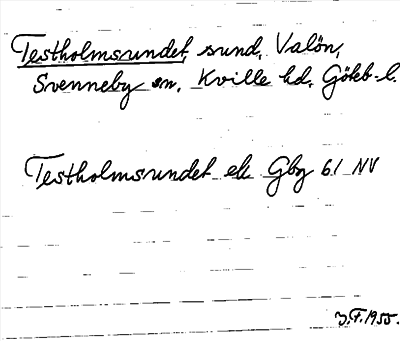 Testholmsundet, sund, Valön,
Svenneby sn, Kville hd, Göteb. l.
Testholmsundet ek Gbg 61 NV
J.F. 1955.